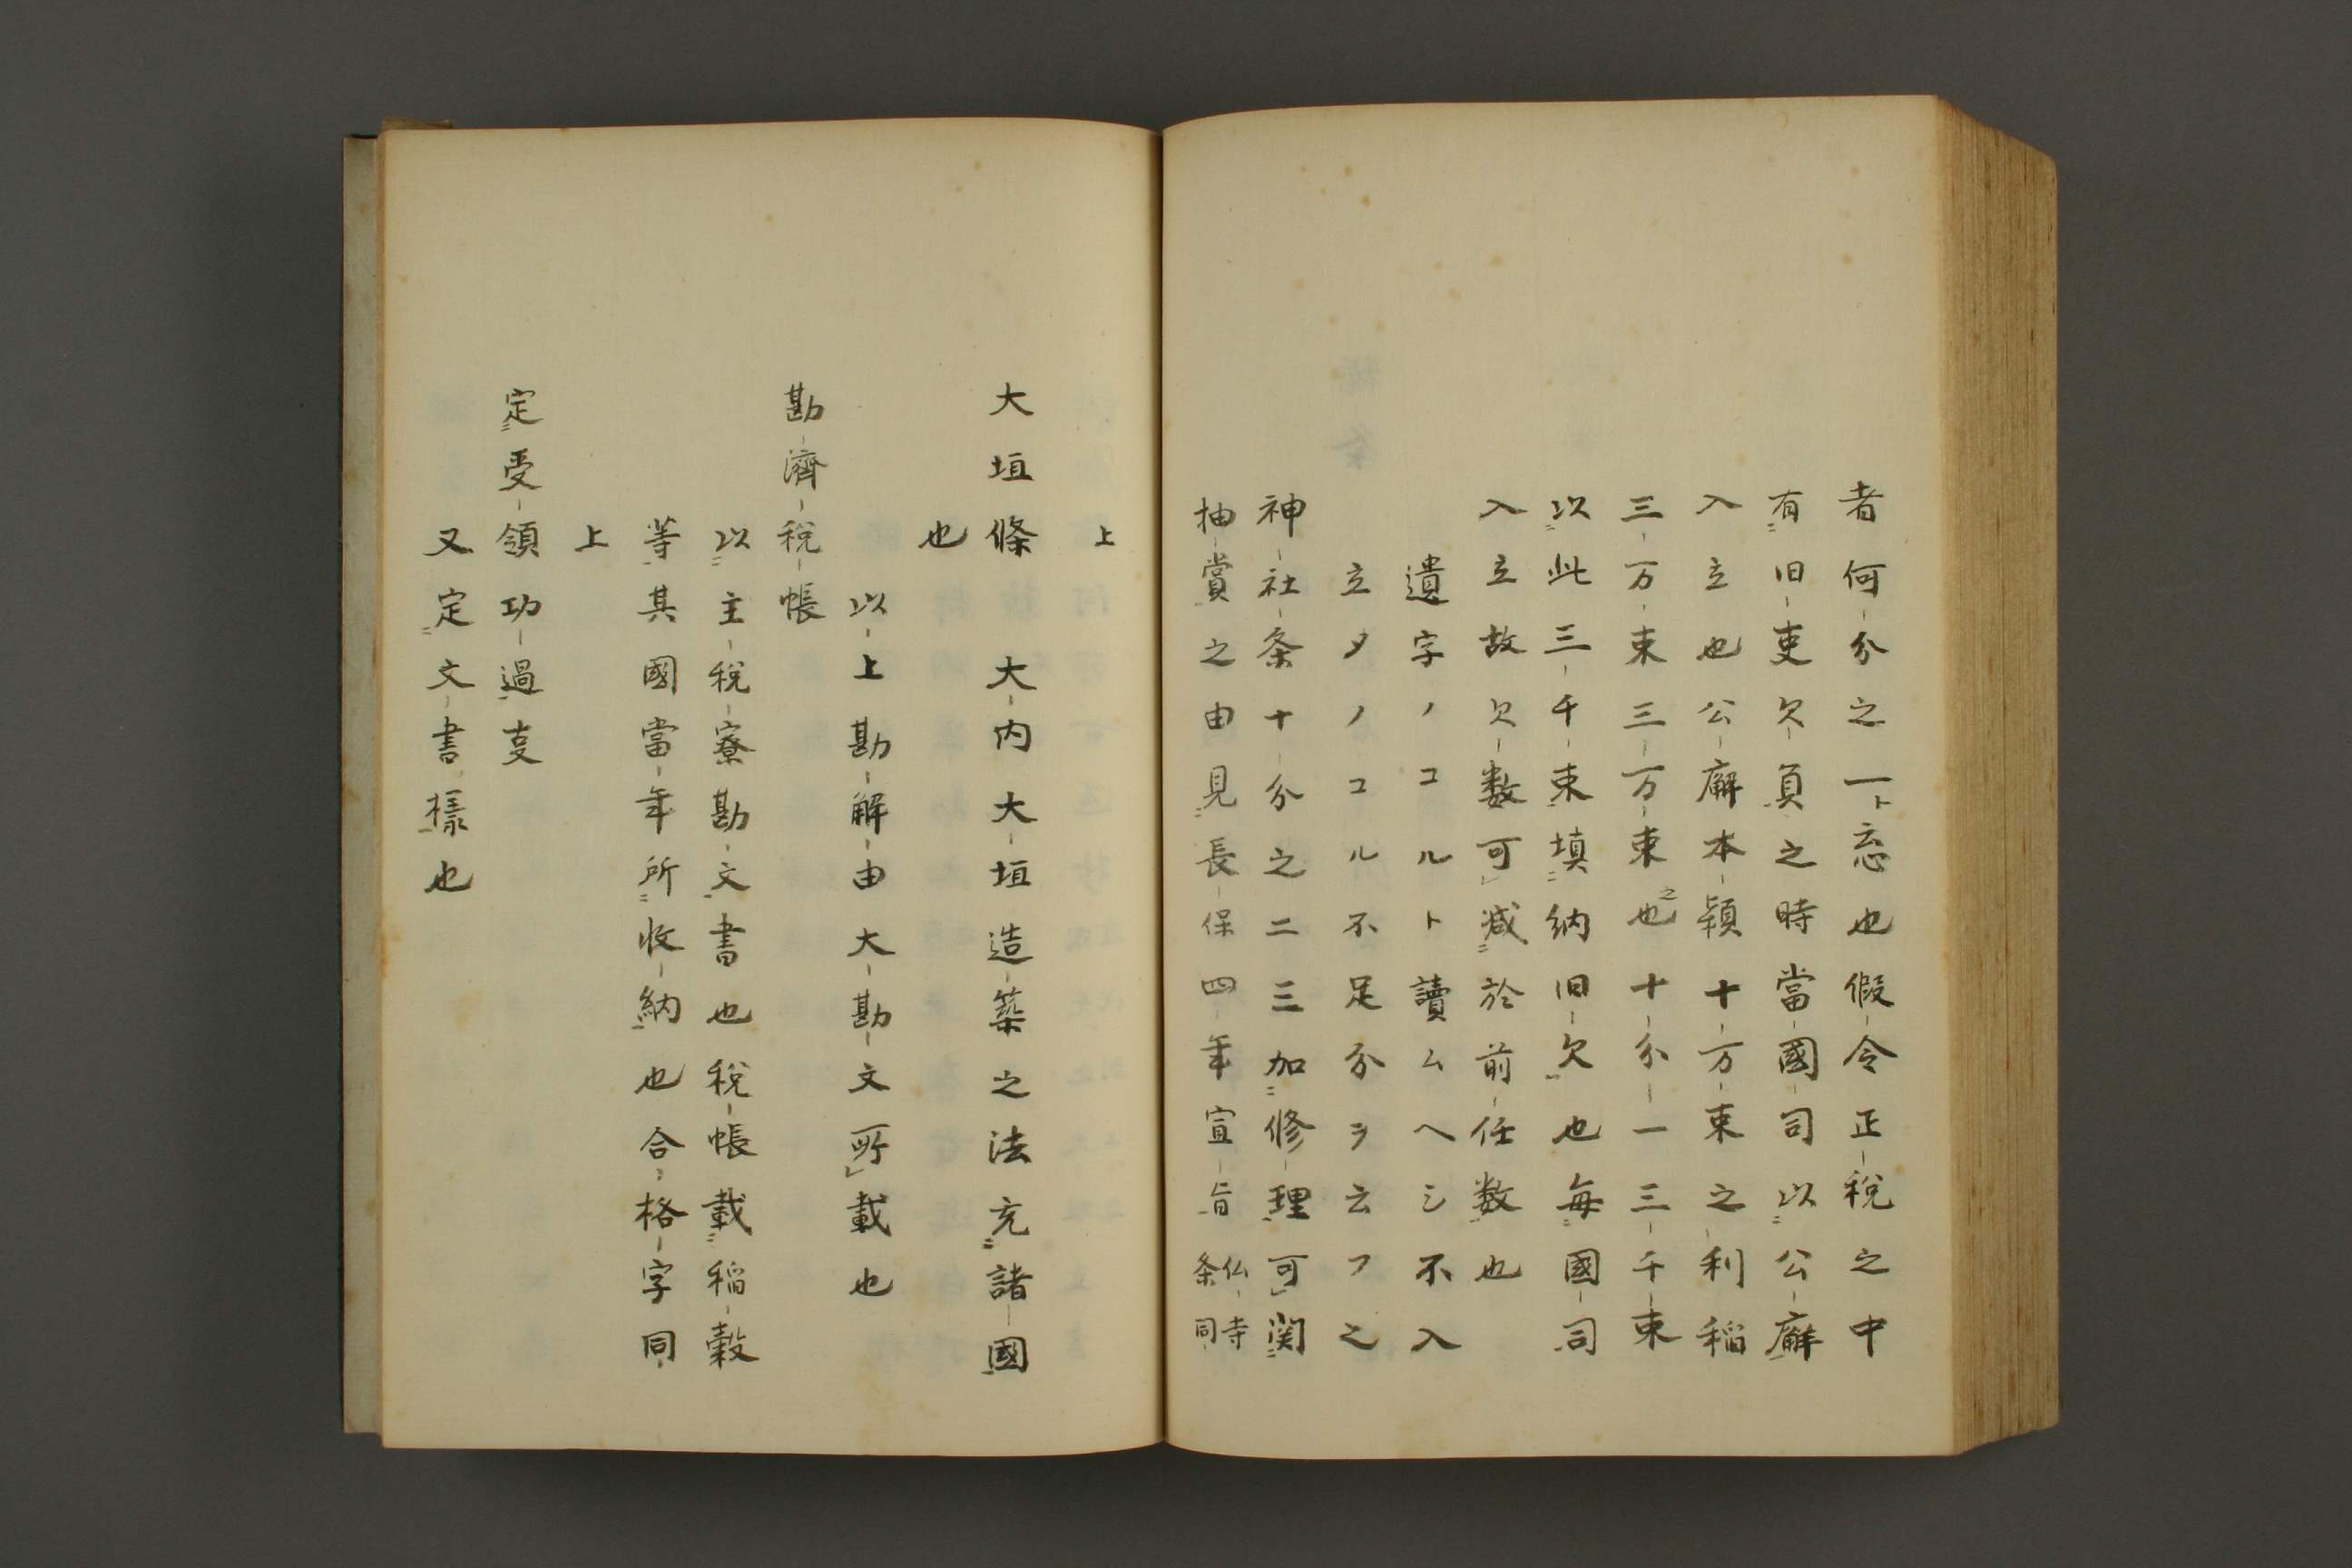 者何分之一ト忘也假令正税之中
有旧吏欠負之時當國司以公廨
入立也公廨本穎十万束之利稲
三万束三万束也之十分一三千束
以此三千束填納旧欠也毎國司
入立故欠数可減於前任数也
遺字ノコルト讀ムヘシ不入
立タノコル不足分ヲ云フ之
神社条十分之二三加修理可関
抽賞之由見長保四年宣旨仏寺条同
上
大垣條 大内大垣造築之法充諸國
也
以上勘解由大勘文所載也
勘濟税帳
以主税寮勘文書也税帳載稲穀
等其國當年所收納也合格字同
上
定受領功過叓
又定文書樣也